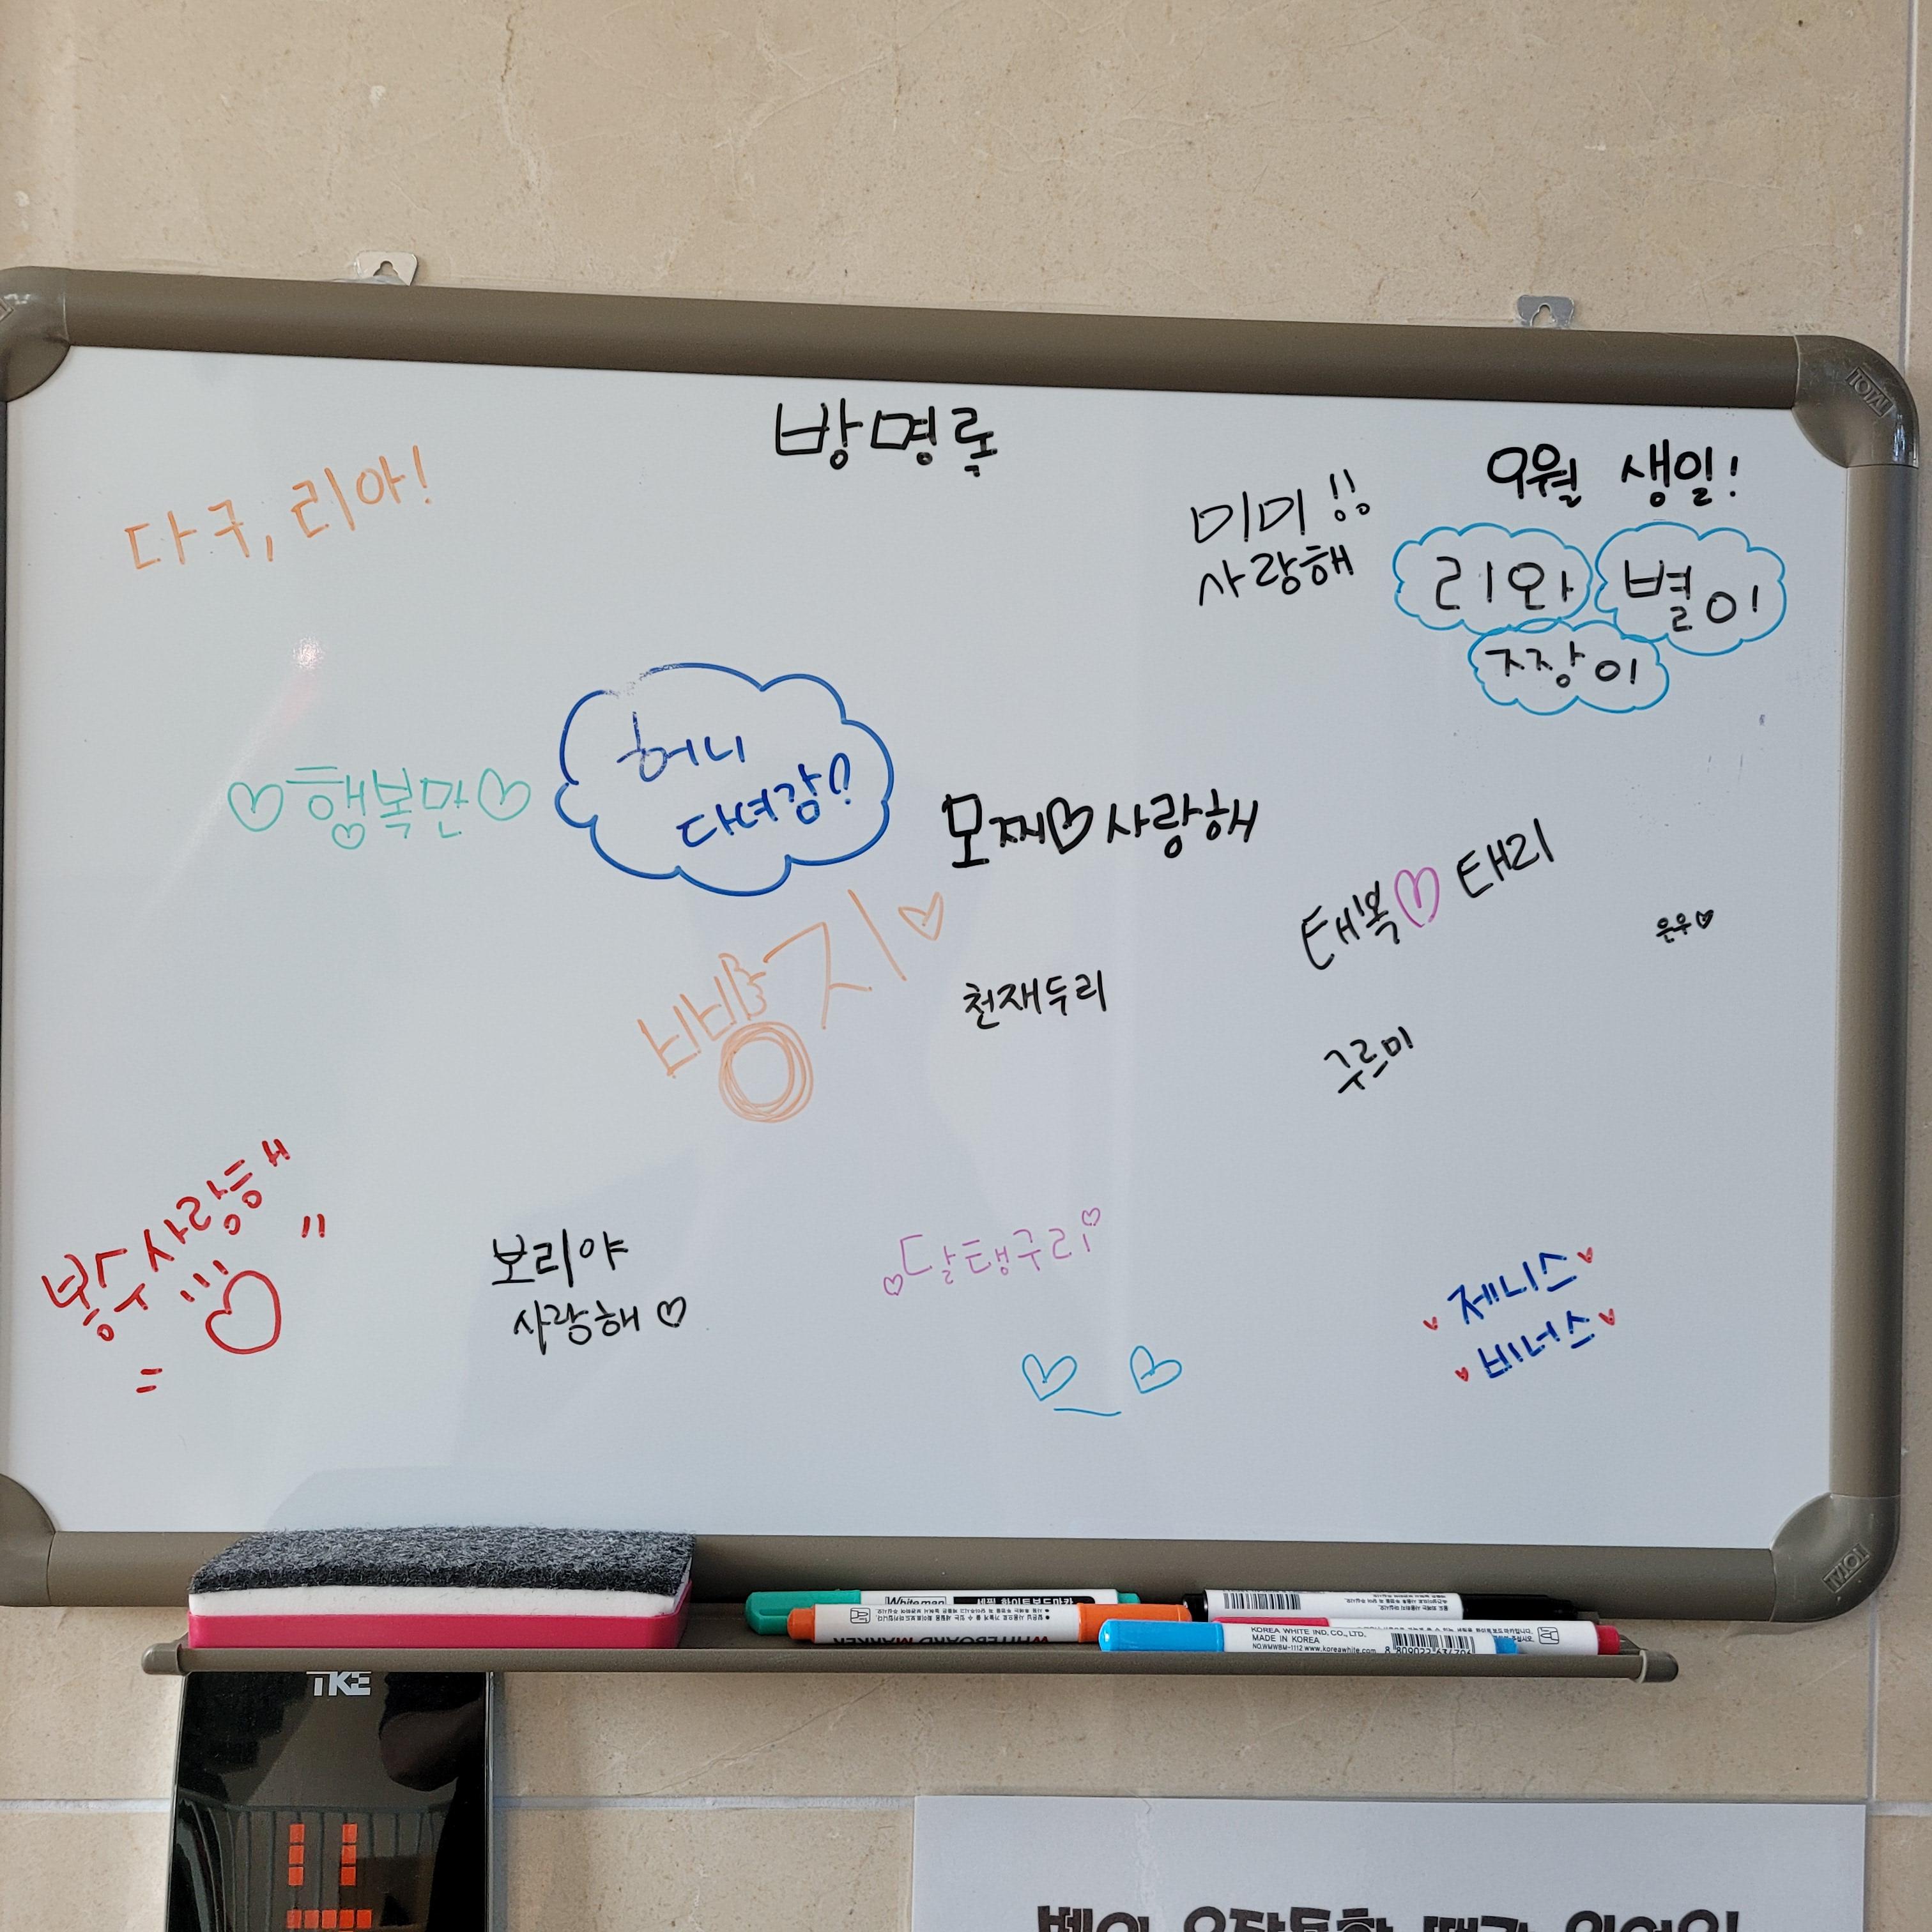 방명록
다구, 리아!
미미!!
사랑해
9월 생일!
리와
별이
지장이
♡행복만♡
허니
다녀감!!
모찌♡사랑해
태복♡태리
은우♡
빵지♡
천재두리
구르미
봉수사랑해
보리야
사랑해♡
♡달탱구리♡
제니스
비너스
Whiteman
WHITEBOARD MARKER
KOREA WHITE IND. CO., LTD.
MADE IN KOREA
NO.WMWBM-1112 www.koreawhite.com
TKE